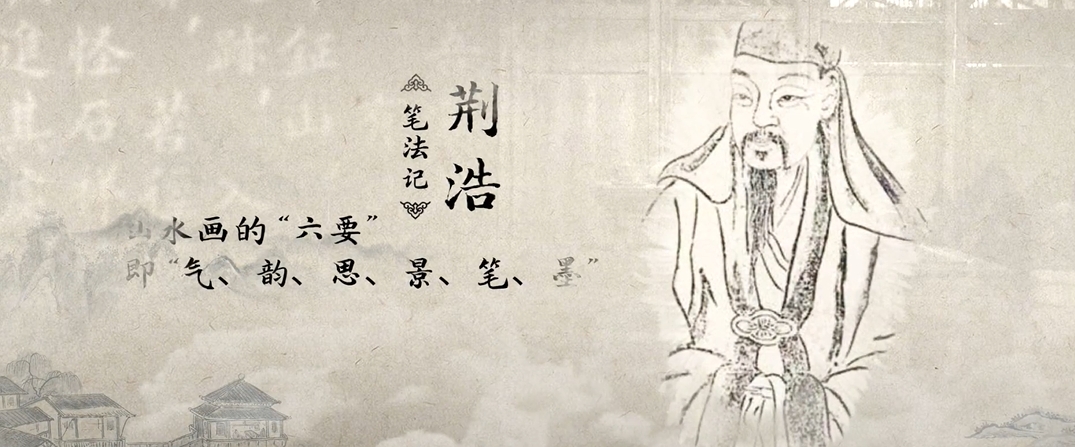 荆浩
笔法记
山水画的“六要”
即“气、韵、思、景、笔、墨”